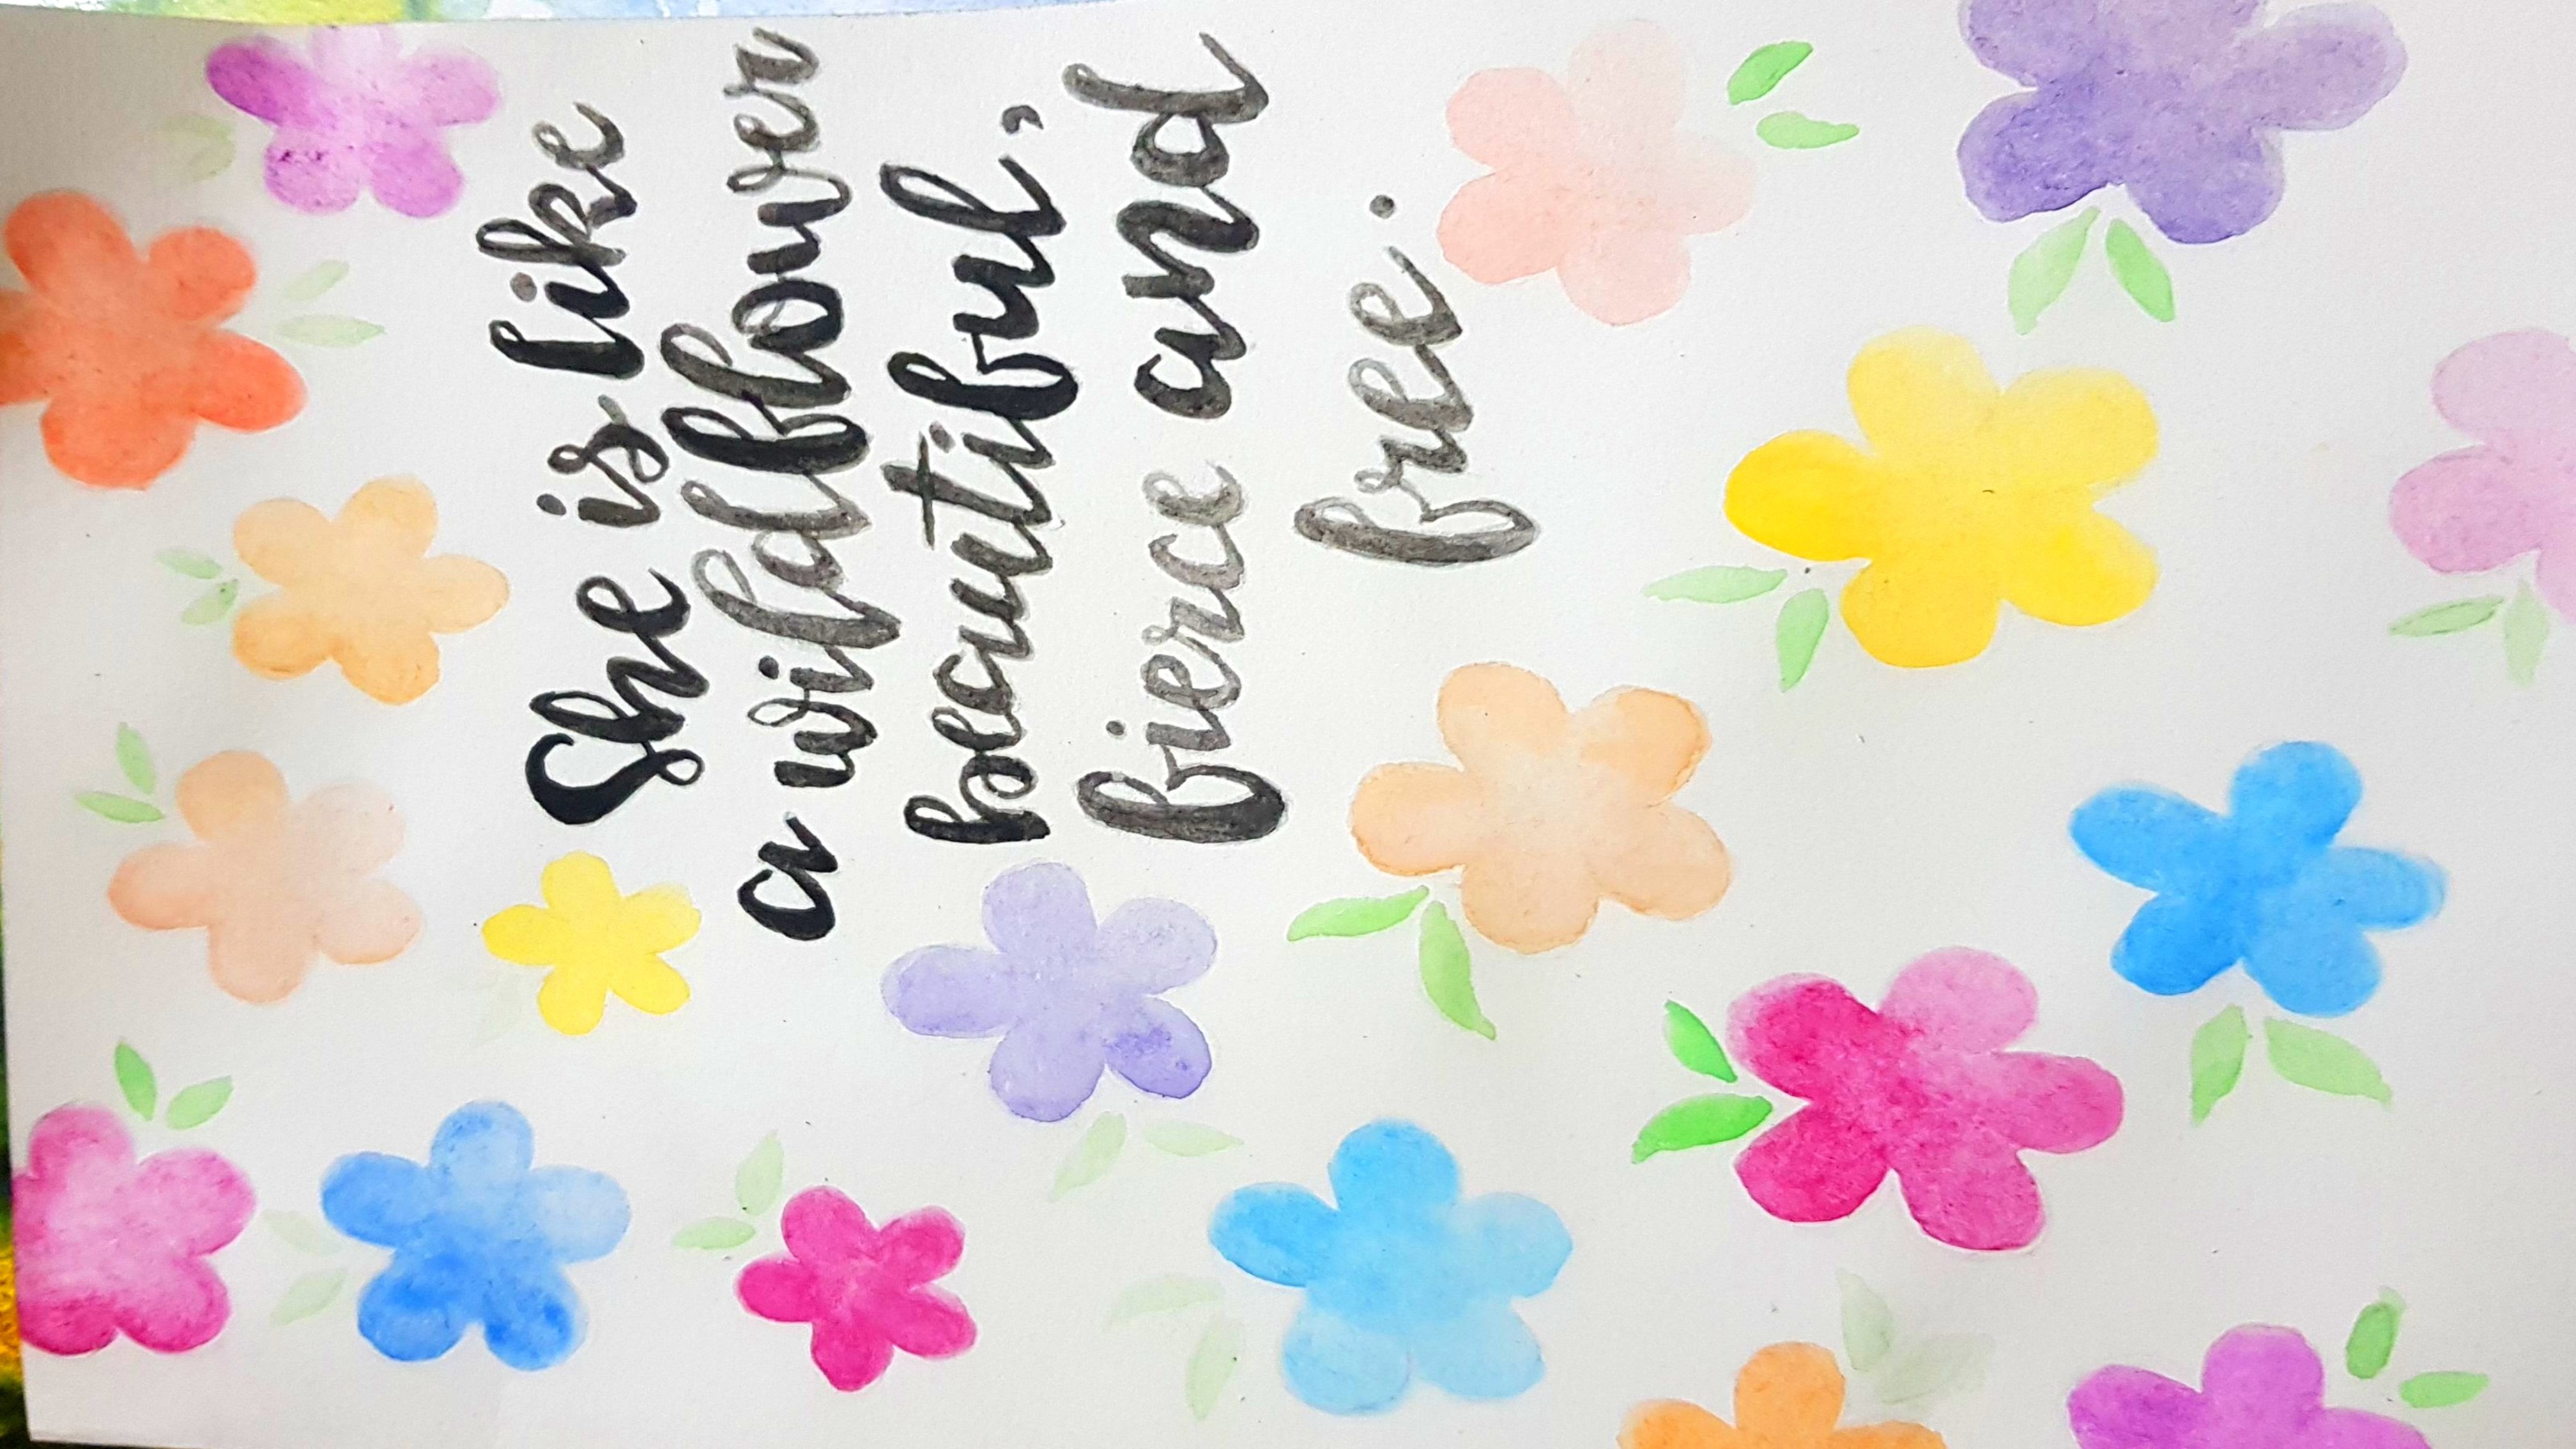 She is like
a wildflower
beautiful,
fierce and
free.